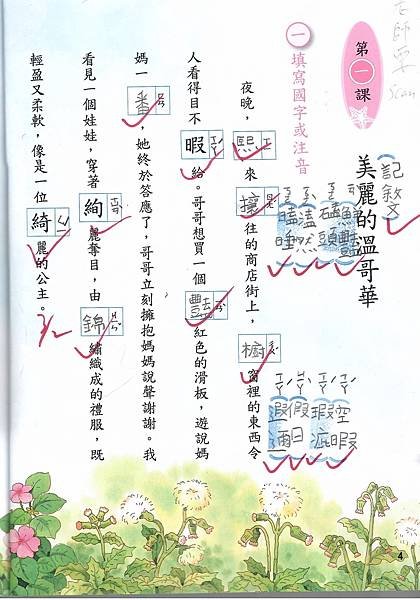 Scan
第一課
美麗的溫哥華
記敘文
一 填寫國字或注音
瞌睡
溘然
磕頭
空暇
瑕疵
假日
夜晚，熙來攘往的商店街上，櫥窗裡的東西令
人看得目不暇給。哥哥想買一個豔紅色的滑板，遊說媽
媽一番，她終於答應了，哥哥立刻擁抱媽媽說聲謝謝。我
看見一個娃娃，穿著絢麗奪目，由錦繡織成的禮服，既
輕盈又柔軟，像是一位綺麗的公主。
3/2
4